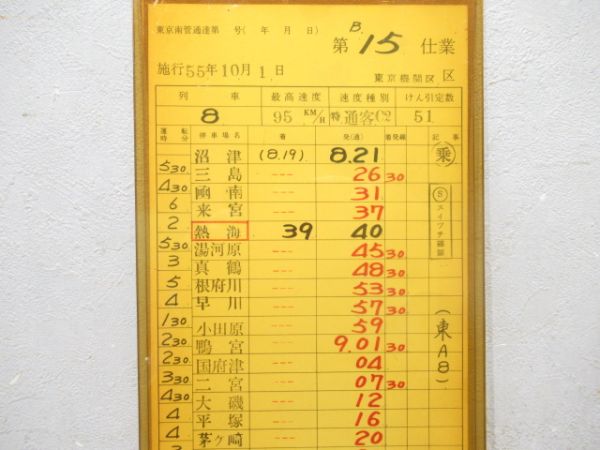 東京南管通達第 号( 年 月 日)
第 B 15 仕業
施行 55年 10月 1日
東京機関区 区
列車 最高速度 速度種別 けん引定数
8 95 KM/H 特通客C2 51
運転時分 停車場名 着 発(通) 着発線 記事
沼津 (8.19) 8.21 乗
5 30
三島 --- 26 30
4 30
函南 --- 31
6
来宮 --- 37
2
熱海 39 40
5 30
湯河原 --- 45 30
3
真鶴 --- 48 30
5
根府川 --- 53 30
4
早川 --- 57 30
1 30
小田原 --- 59
2 30
鴨宮 --- 9.01 30
2 30
国府津 --- 04
3 30
二宮 --- 07 30
4 30
大磯 --- 12
4
平塚 --- 16
4
茅ケ崎 --- 20
S スイッチ
(東A8)